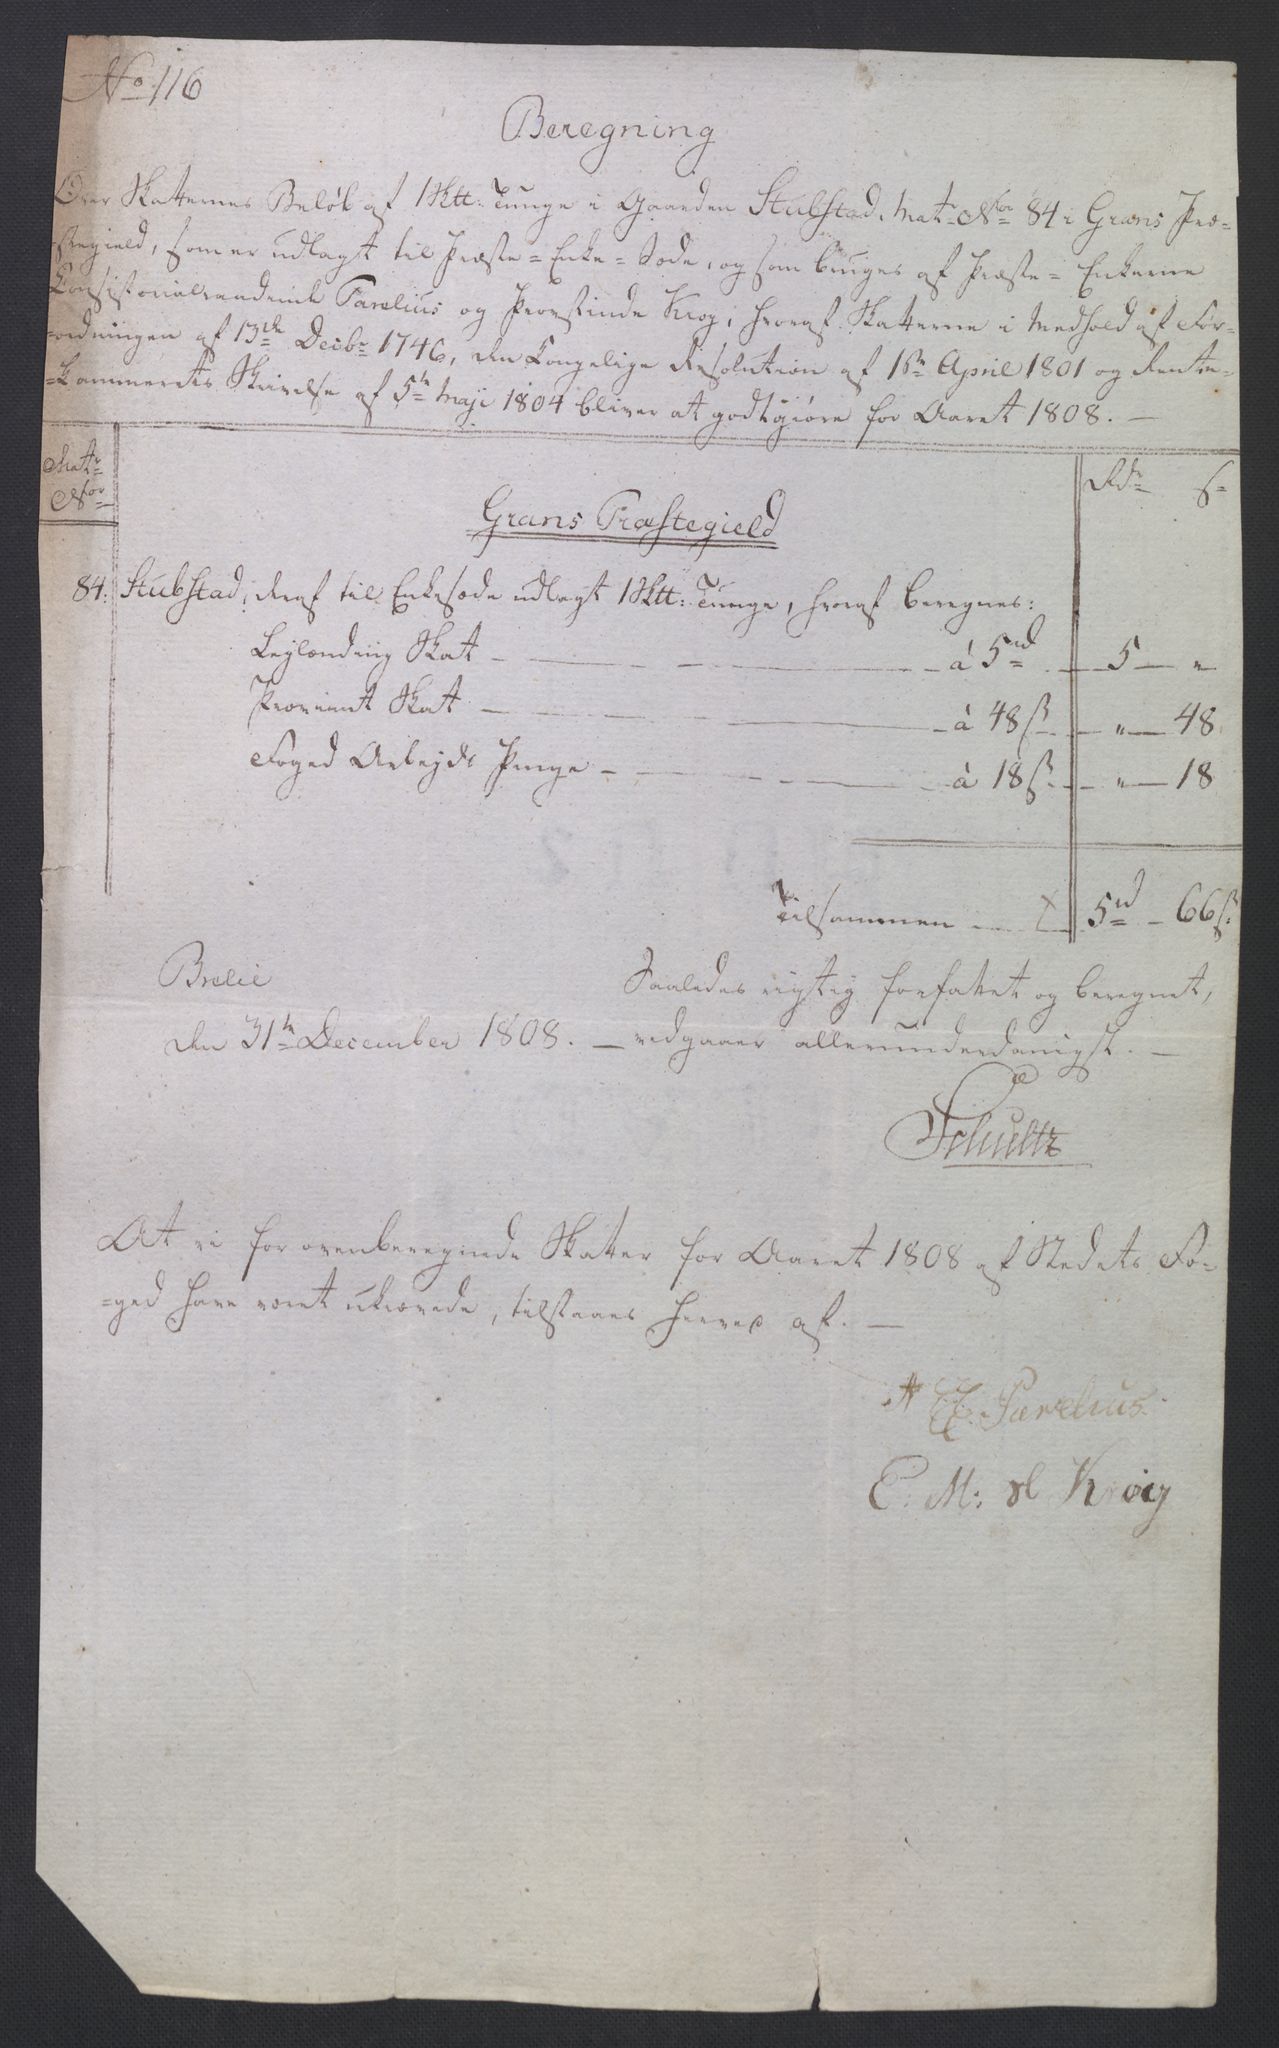 No 116
Beregning
Over Skatternes Beløb af 1 Sktt: Tunge i Gaarden Stubstad, Matr. Nor 84 i Grans Præ-
stegield, som er udlagt til Præste-Enke-Sæde, og som bruges af Præste-Enkerne
Consistorialraadinde Pavelius og Provstinde Krog, hvoraf Skatterne i Medhold af For-
-ordningen af 13de Decbr 1746, den Kongelige Resolution af 18de April 1801 og Rente-
-Kammerets Skrivelse af 5te Maji 1804 bliver at godtgiøre for Aaret 1808. -
Matr Nor
Rdr s
Grans Præstegield
84. Stubstad, deraf til Enkesæde udlagt 1 Sktt: Tunge, hvoraf beregnes:
Leylænding Skat - à 5rd - 5 - "
Proviant Skat - à 48 s - " - 48
Foged Arbejds Penge - à 18 s - " - 18
Tilsammen 5rd - 66 s
Brelie Saaledes rigtig forfattet og beregnet,
den 31te December 1808. - vedgaaer allerunderdanigst. -
Schultz
At vi for ovenberegnede Skatter for Aaret 1808 af Stedets Fo-
-ged have været ukrævede, tilstaaes herved af. -
E. Pavelius.
E. M: sl Krog